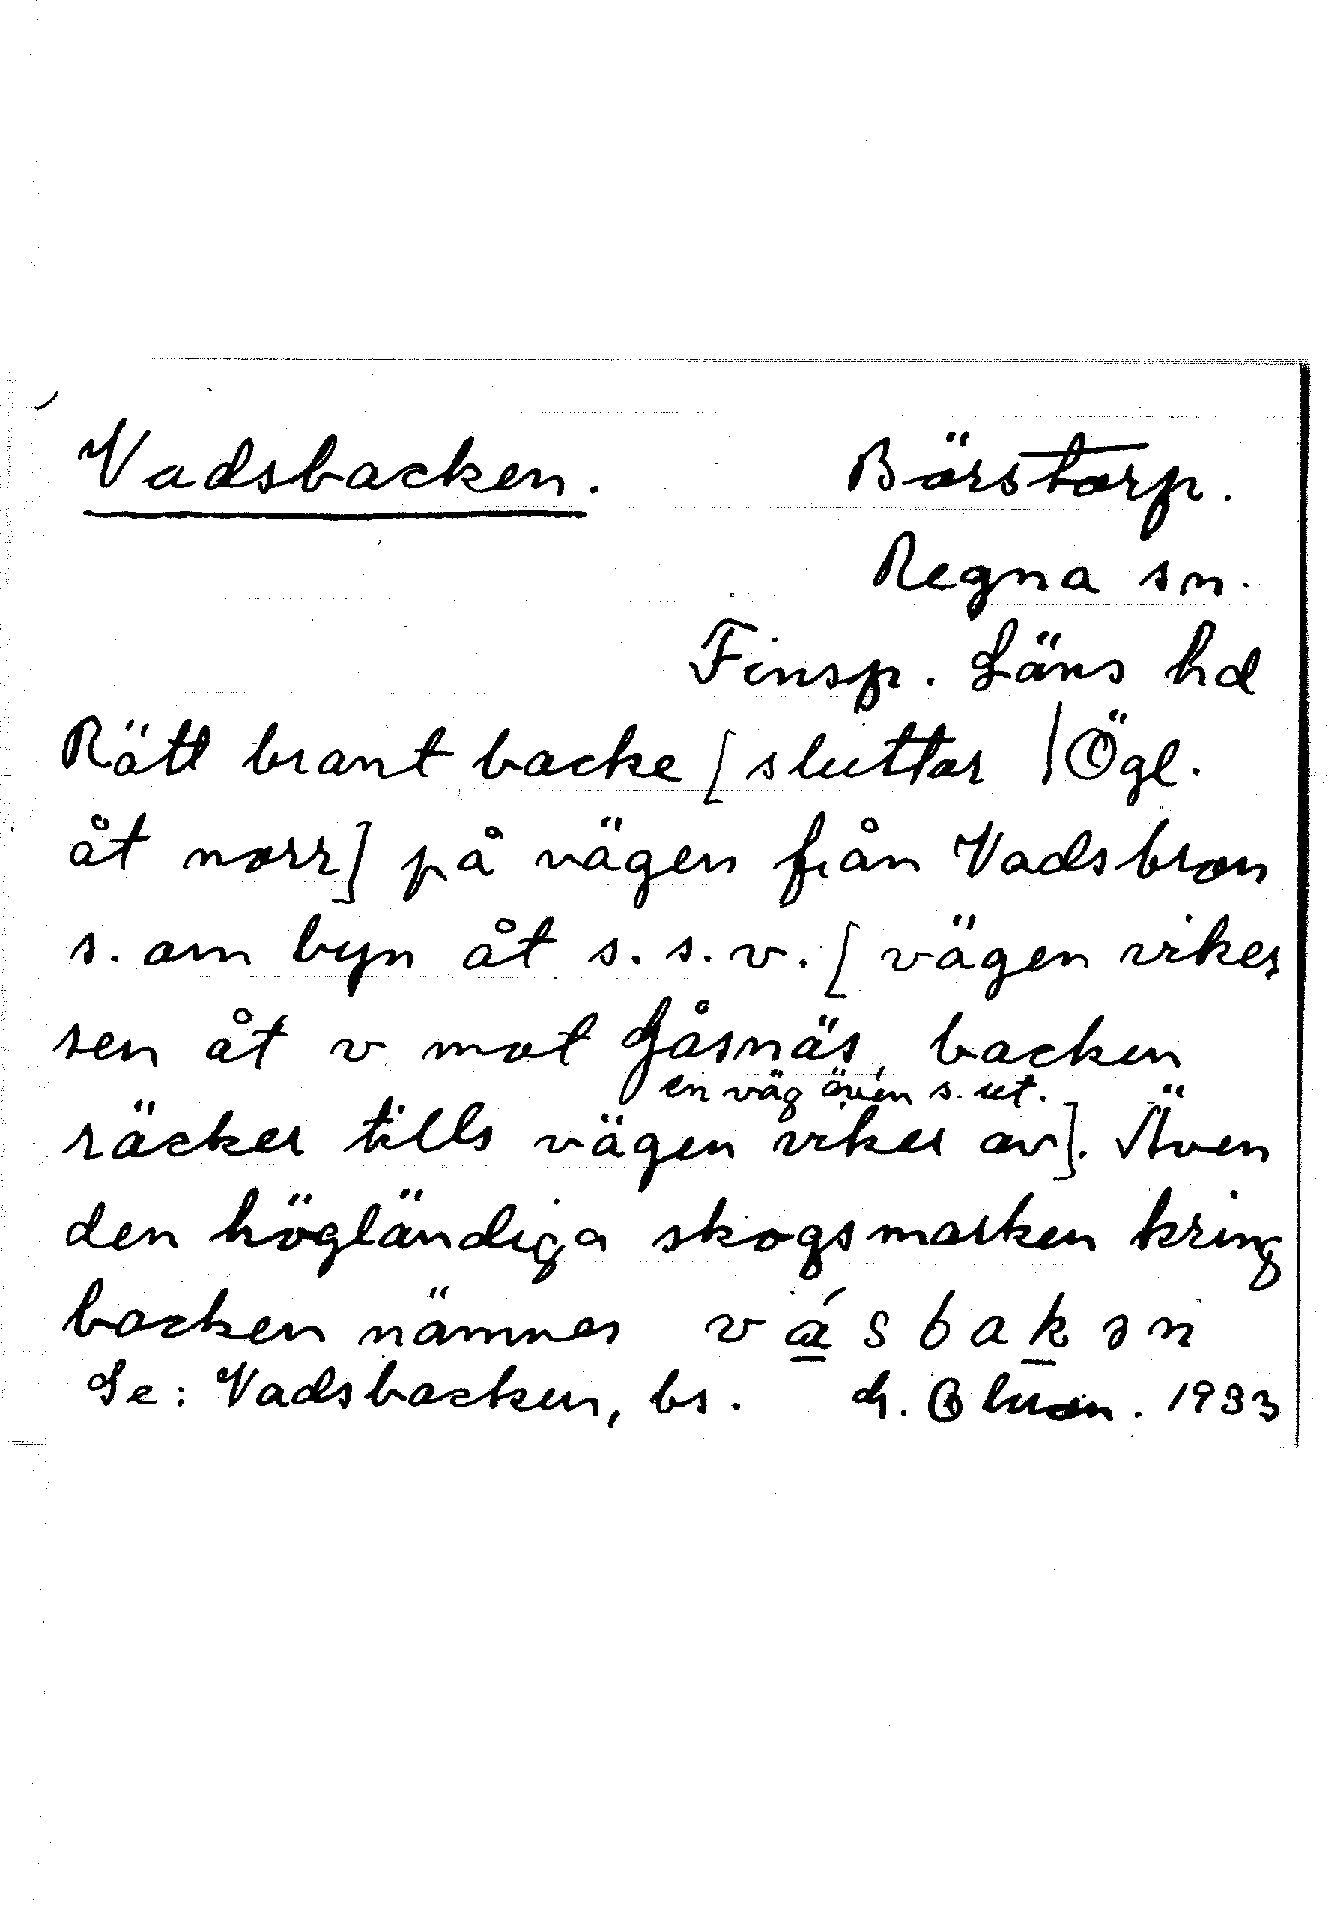 Vadsbacken. Börstorp.
Regna sn.
Finsp. Läns hd
Rätt brant backe [sluttar | Ögl.
åt norr] på vägen från Vadsbron
s. om byn åt s.s.v. [vägen viker
sen åt v mot Gåsnäs, backen
en väg även s. ut.
räcker tills vägen viker av]. Även
den högländiga skogsmarken kring
backen nämnes vásbakən
Se: Vadsbacken, bs. 1933